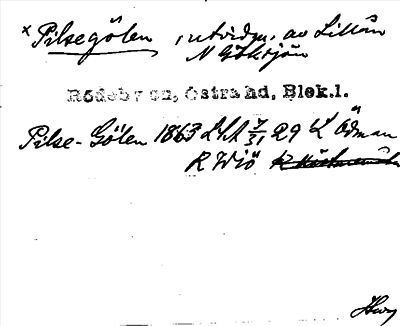 × Pilsegölen, utvidgn. av Lillån
N Göksjön
Rödeby sn, Östra hd, Blek.l.
Pilse-Gölen 1863 LSA 29 L Ödman
R Wiö